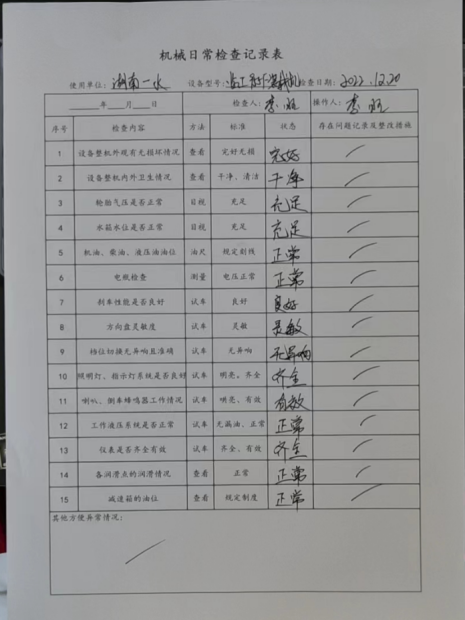 机械日常检查记录表
使用单位：湖南一水 设备型号： 检查日期：2022.12.20
年 月 日 检查人：李 操作人：李
序号 检查内容 方法 标准 状态 存在问题记录及整改措施
1 设备整机外观有无损坏情况 查看 完好无损 完好
2 设备整机内外卫生情况 查看 干净、清洁 干净
3 轮胎气压是否正常 目视 充足 充足
4 水箱水位是否正常 目视 充足 充足
5 机油、柴油、液压油油位 油尺 规定刻线 正常
6 电瓶检查 测量 电压正常 正常
7 刹车性能是否良好 试车 良好 良好
8 方向盘灵敏度 试车 灵敏 灵敏
9 档位切换无异响且准确 试车 无异响 无异响
10 照明灯、指示灯系统是否良好 试车 明亮、齐全 齐全
11 喇叭、倒车蜂鸣器工作情况 试车 明亮、有效 有效
12 工作液压系统是否正常 试车 无漏油、正常 正常
13 仪表是否齐全有效 试车 齐全、有效 齐全
14 各润滑点的润滑情况 查看 正常 正常
15 减速箱的油位 查看 规定制度 正常
其他方便异常情况：